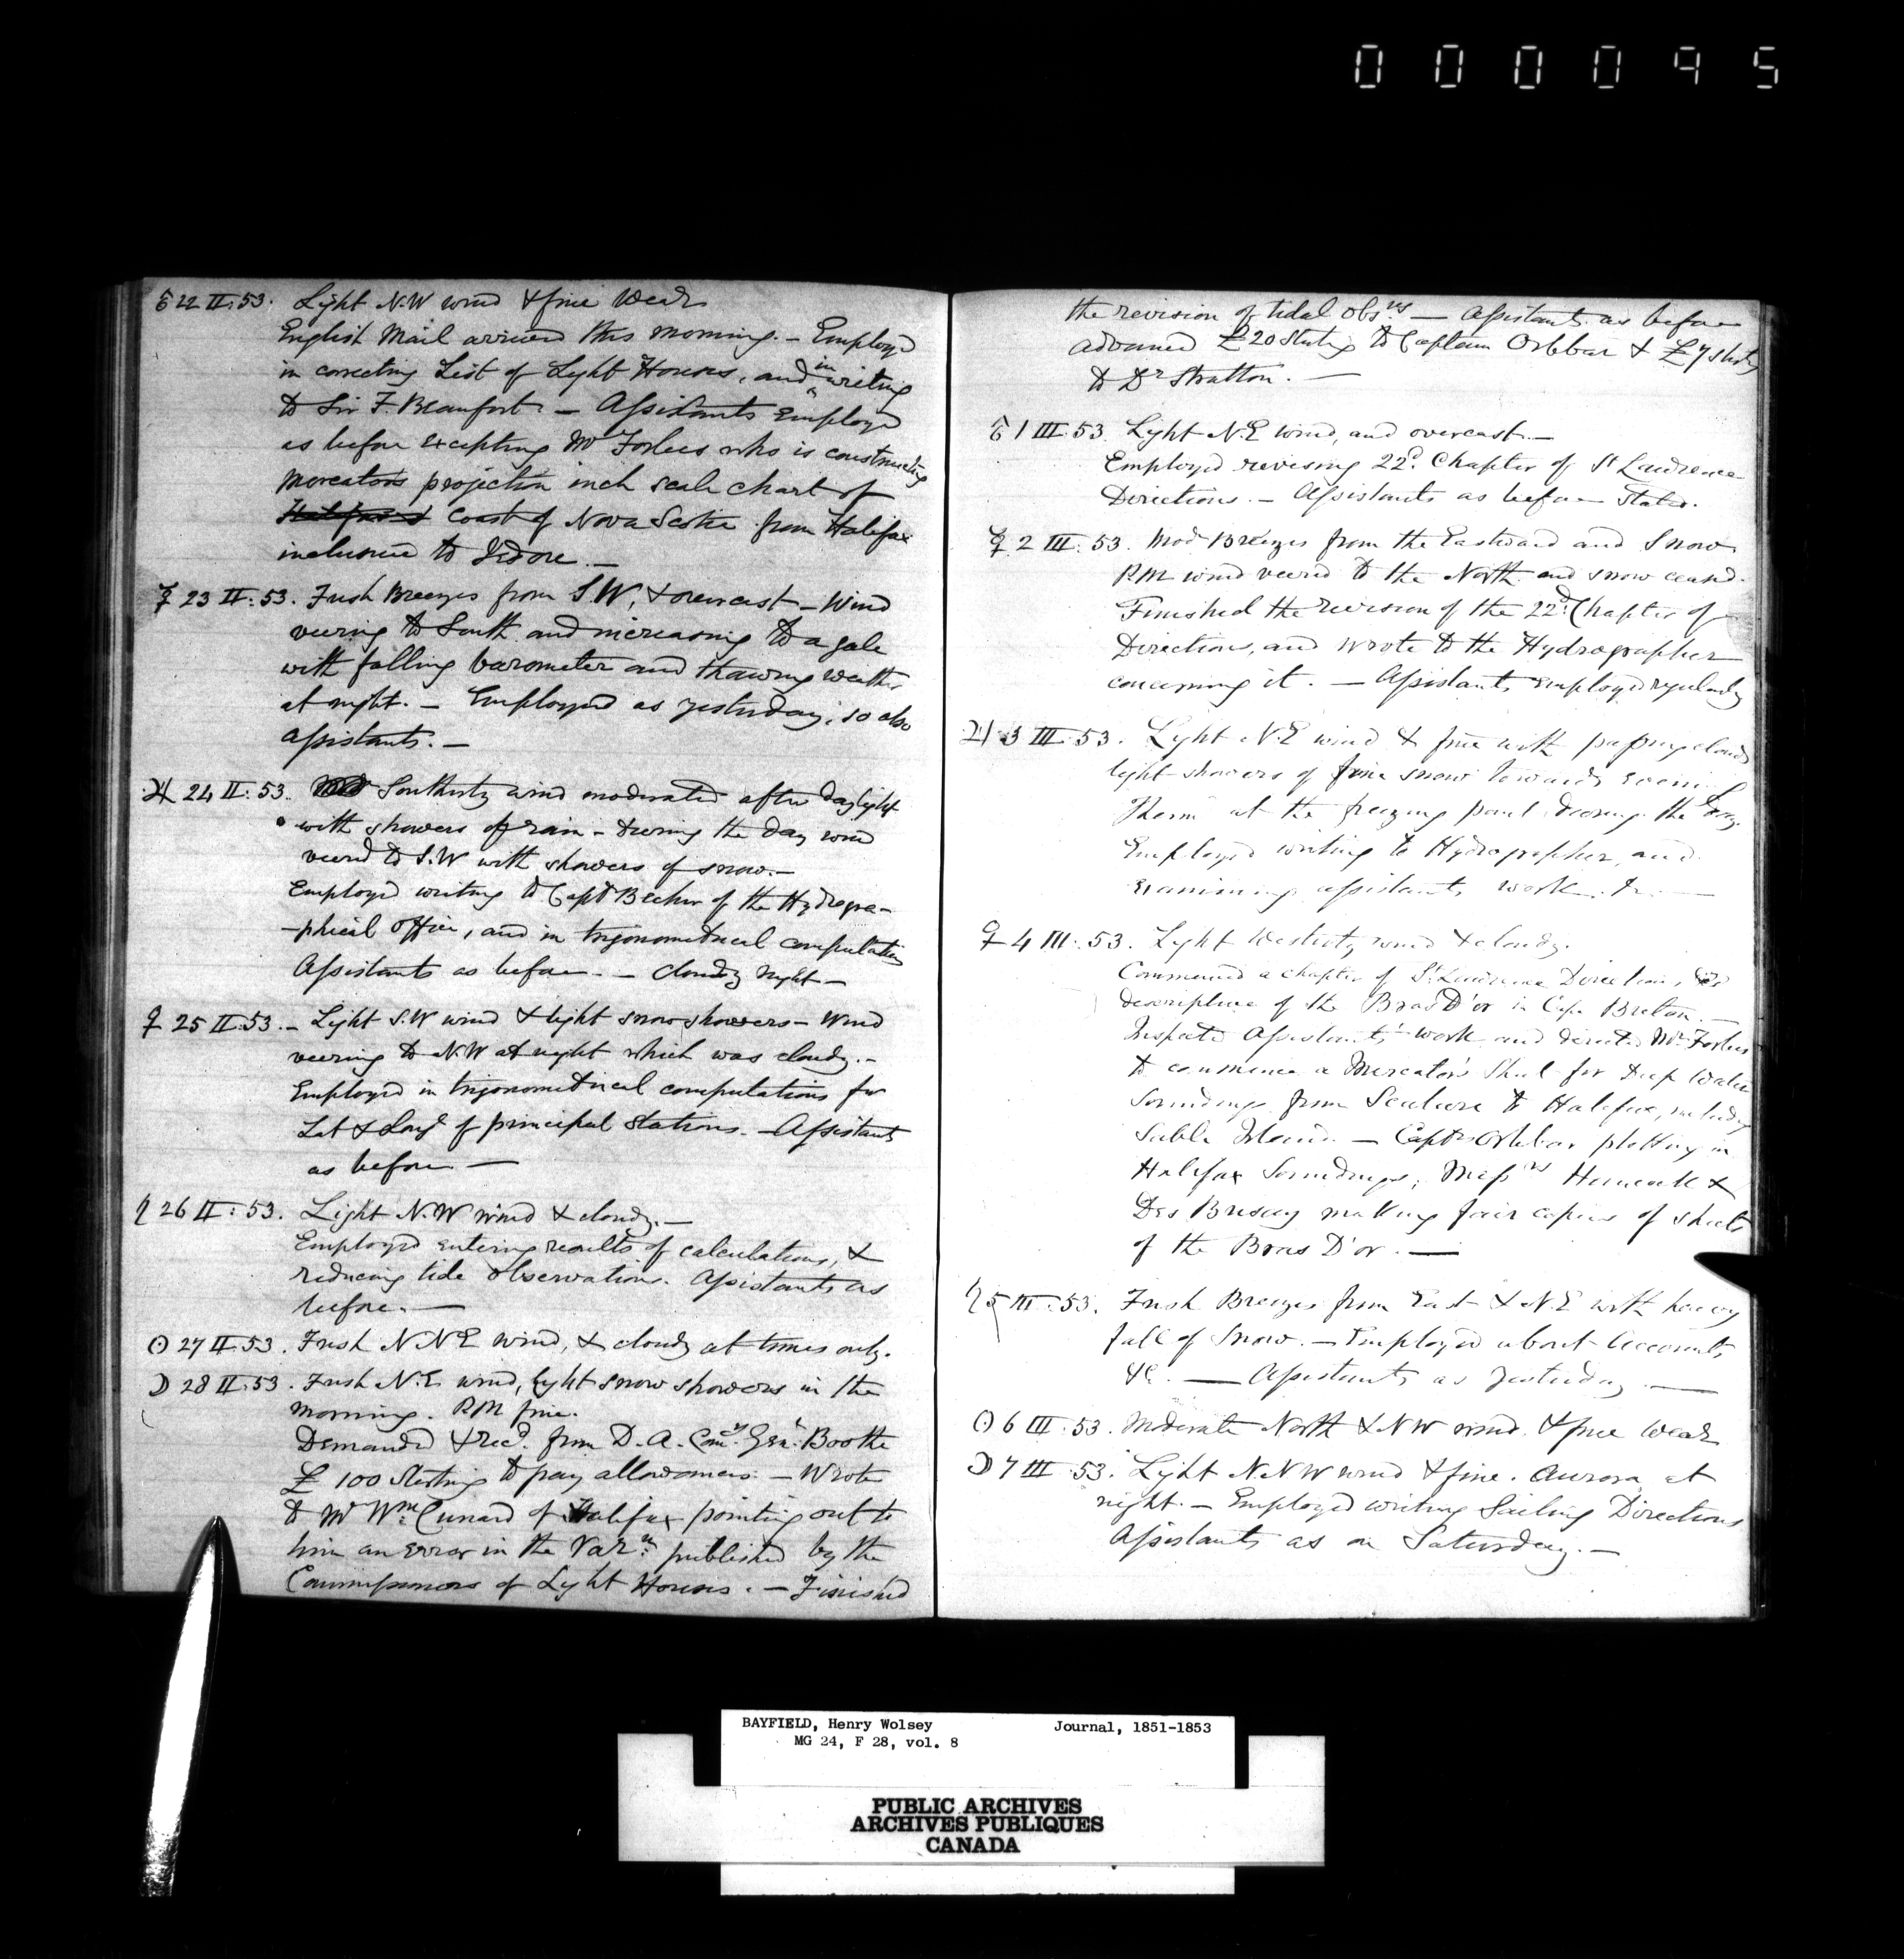 000095
♂ 22 II: 53. Light N.W wind & fine Wear
English Mail arrived this morning. — Employed
in correcting List of Light Houses, and in writing
to Sir F. Beaufort. — Assistants Employed
as before excepting Mr Forbes who is constructing
Mercators projection inch scale chart of
Halifax coast of Nova Scotia from Halifax
inclusive to Isdore. —
☿ 23 II: 53. Fresh Breezes from S.W, & overcast — Wind
veering to South and increasing to a gale
with falling barometer and thawing weather
at night. — Employed as yesterday, so also
Assistants. —
♃ 24 II: 53. Southerly wind moderated after daylight
with showers of rain — during the day wind
veered to S.W with showers of snow. —
Employed writing to Capt Becher of the Hydrogra-
-phical Office, and in trigonometrical computations
Assistants as before. — Cloudy night —
♀ 25 II: 53. — Light S.W wind & light snow showers — Wind
veering to N.W at night which was cloudy. —
Employed in trigonometrical computations for
Lat & Longd of principal Stations. — Assistants
as before —
♄ 26 II: 53. Light N.W wind & cloudy. —
Employed entering results of calculations, &
reducing tide observations. Assistants as
before. —
☉ 27 II 53. Fresh N N E wind, & cloudy at times only.
☽ 28 II: 53. Fresh N.E wind, light snow showers in the
morning. P.M fine.
Demanded & recd. from D. A. Comy. Genl. Boothe
£ 100 Sterling to pay allowances. — Wrote
to Mr Wm. Cunard of Halifax pointing out to
him an error in the Varn. published by the
Commissioners of Light Houses. — Finished
the revision of tidal Obsns — Assistants as before
advanced £20 Sterling to Captain Orlebar & £7 sterlg
to Dr Stratton. —
♂ 1 III: 53. Light N.E wind, and overcast. —
Employed revising 22d. Chapter of St Lawrence
Directions. — Assistants as before Stated.
☿ 2 III: 53. Mod Breezes from the Eastward and Snow
P.M wind veered to the North and snow ceased.
Finished the revision of the 22d. Chapter of
Directions, and wrote to the Hydrographer
concerning it. — Assistants employed regularly
♃ 3 III: 53. Light N.E wind & fine with passing clouds
light showers of fine snow towards
Therm at the freezing point during the Day.
Employed writing to Hydrographer, and
examining assistants work. &c. —
♀ 4 III: 53. Light Westerly wind & cloudy.
Commenced a chapter of St. Lawrence Directions,
descriptive of the Bras D'or in Cape Breton. —
Inspected Assistants' work and directed Mr Forbes
to commence a Mercator's Sheet for Deep Water
Soundings from Scatari to Halifax, including
Sable Island. — Captn Orlebar plotting in
Halifax Soundings; Messrs Hancock &
Des Brisay making fair copies of sheets
of the Bras D'or. —
♄ 5 III: 53. Fresh Breezes from East & N.E with heavy
fall of Snow. — Employed about Accounts
&c. — Assistants as yesterday —
☉ 6 III: 53. Moderate North & NW wind & fine Wear
☽ 7 III: 53. Light N.N W wind & fine. Aurora at
night. — Employed writing Sailing Directions
Assistants as on Saturday. —
BAYFIELD, Henry Wolsey Journal, 1851-1853
MG 24, F 28, vol. 8
PUBLIC ARCHIVES
ARCHIVES PUBLIQUES
CANADA